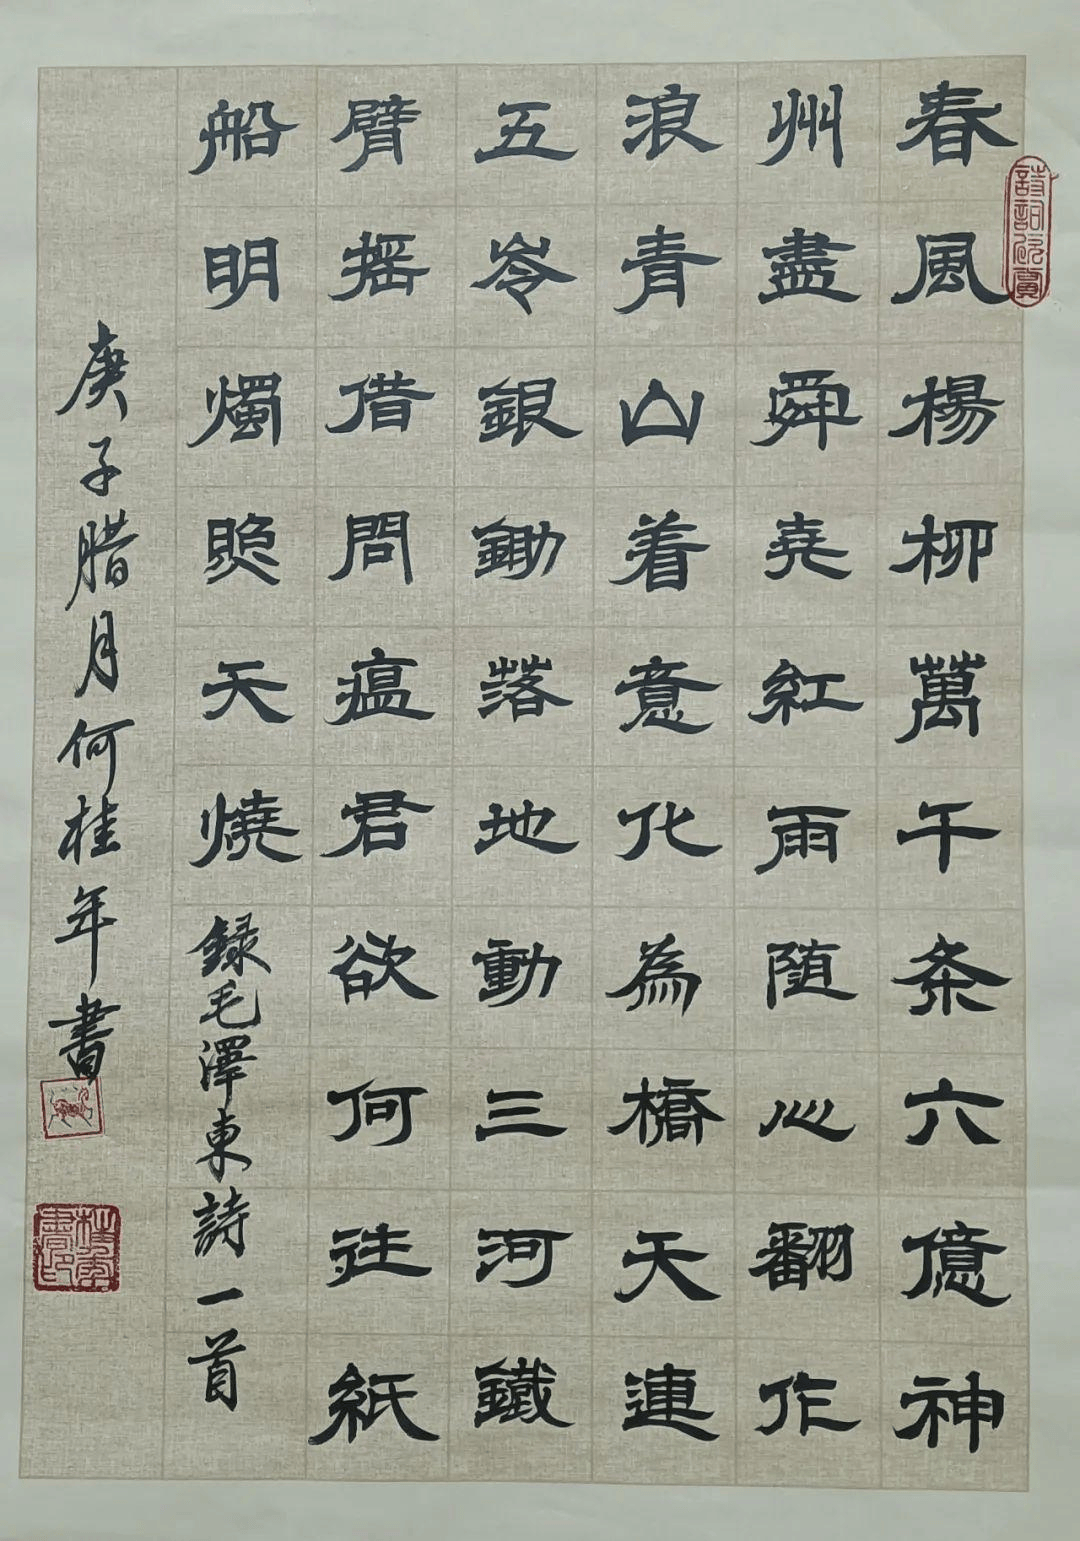 春風楊柳萬千条六億神
州盡舜堯紅雨随心翻作
浪青山着意化為橋天連
五岺銀鋤落地動三河鐵
臂摇借問瘟君欲何往紙
船明燭照天燒
録毛澤東詩一首
庚子腊月何桂年書